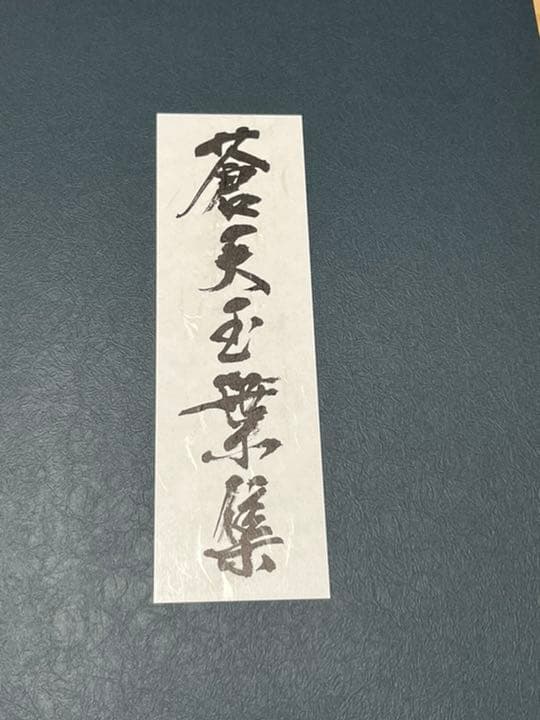 蒼天玉葉集